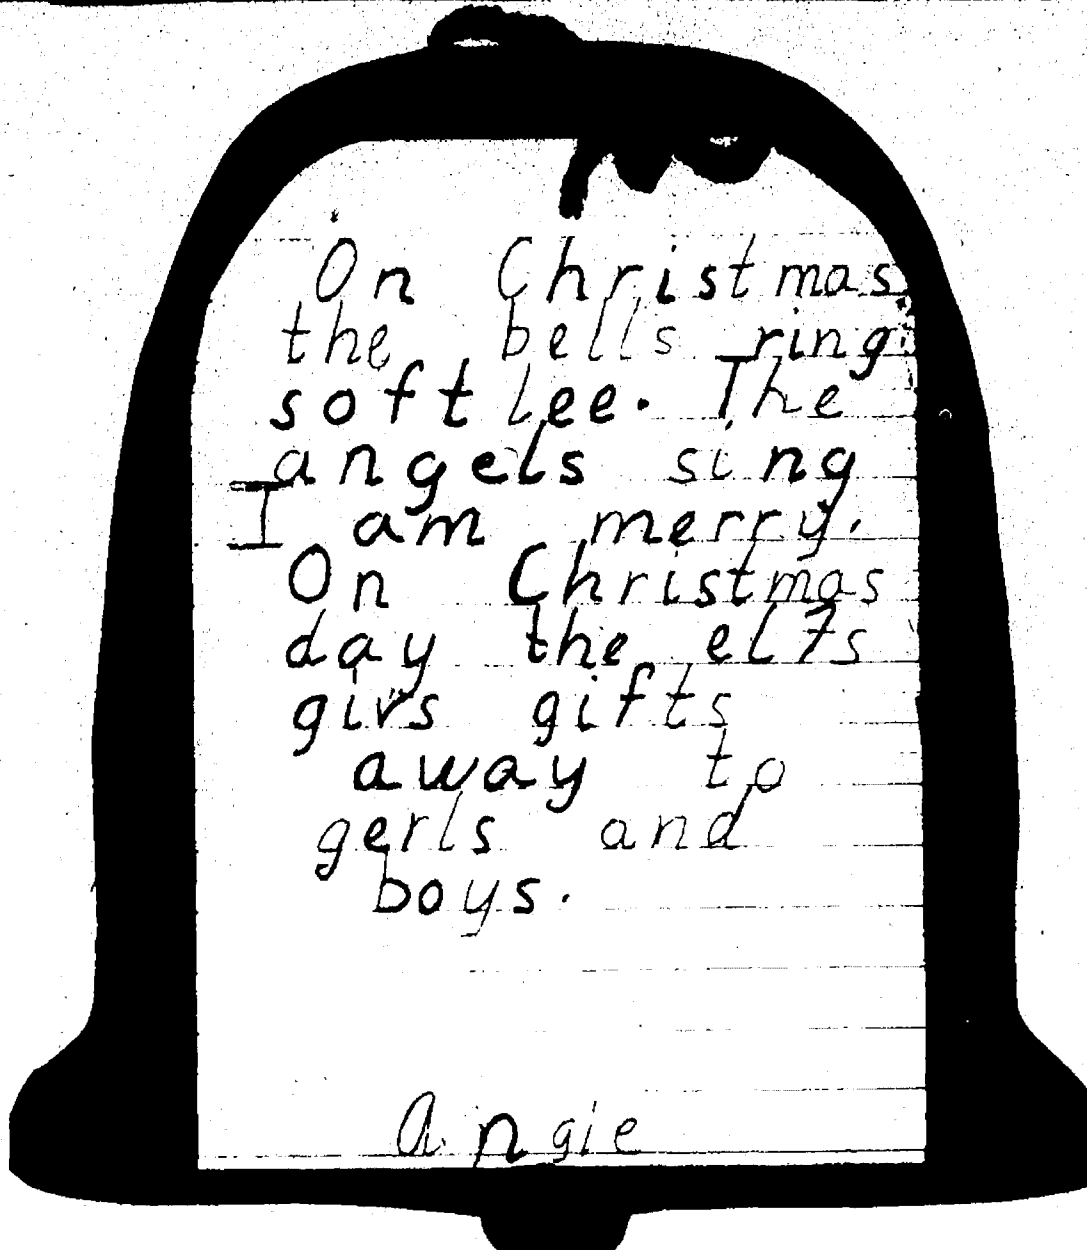 On Christmas
the bells ring
softlee. The
angels sing
I am merry.
On Christmas
day the elfs
givs gifts
away to
gerls and
boys.
Angie